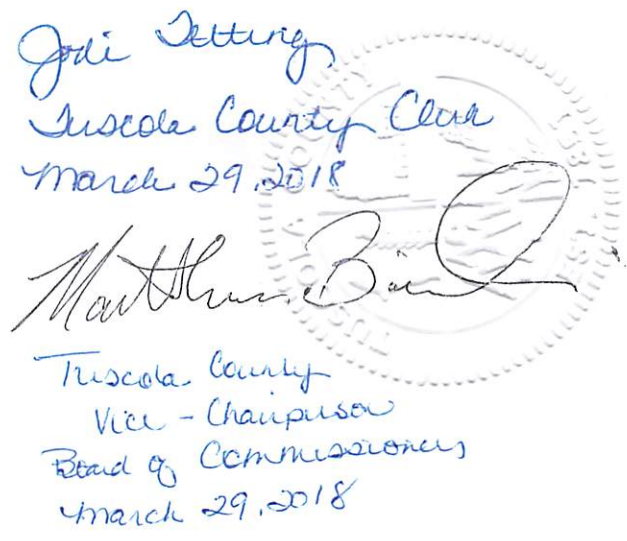 Jodi Fetting
Tuscola County Clerk
March 29, 2018
Matthew Bierlein
Tuscola County
Vice - Chairperson
Board of Commissioners
March 29, 2018
TUSCOLA COUNTY